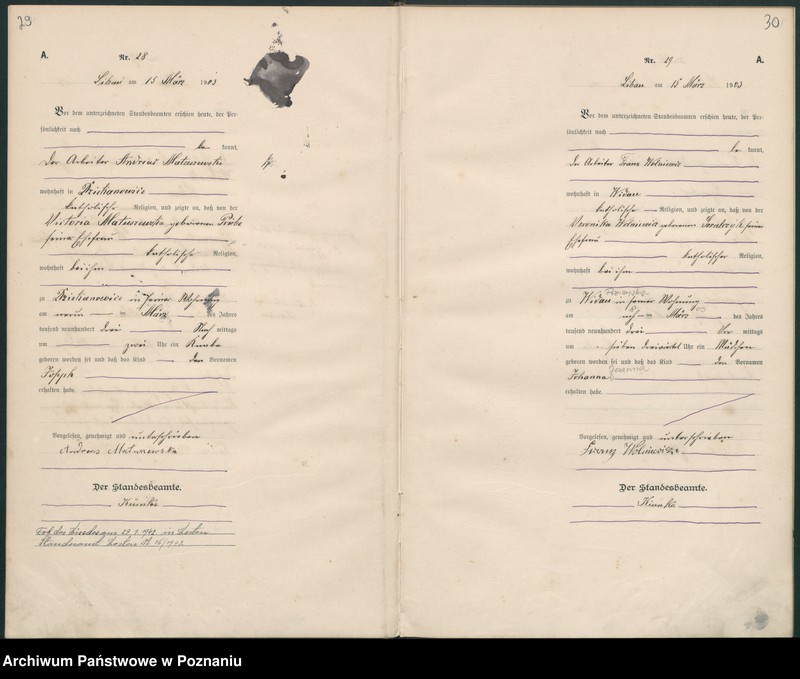 29
A.
Nr. 28
Libau am 15 März 1903
Vor dem unterzeichneten Standesbeamten erschien heute, der Per-
sönlichkeit nach
be kannt,
der Arbeiter Andreas Matuszewski
wohnhaft in Dziekanowice
katholischer Religion, und zeigte an, daß von der
Victoria Matuszewska geborenen
seiner Ehefrau
katholischer Religion,
wohnhaft bei ihm
zu Dziekanowice in seiner Wohnung
am neun ten März des Jahres
tausend neunhundert drei Nach mittags
um zwei Uhr ein Knabe
geboren worden sei und daß das Kind den Vornamen
Joseph
erhalten habe.
Vorgelesen, genehmigt und unterschrieben
Andreas Matuszewski
Der Standesbeamte.
30
A.
Nr. 29
Libau am 15 März 1903
Vor dem unterzeichneten Standesbeamten erschien heute, der Per-
sönlichkeit nach
be kannt,
der Arbeiter Franz Wolniewicz
wohnhaft in Widau
katholischer Religion, und zeigte an, daß von der
Veronika geborenen seiner
Ehefrau
katholischer Religion,
wohnhaft bei ihm
zu Widau in seiner Wohnung
am März des Jahres
tausend neunhundert drei Vor mittags
um sieben dreiviertel Uhr ein Mädchen
geboren worden sei und daß das Kind den Vornamen
Johanna
erhalten habe.
Vorgelesen, genehmigt und unterschrieben
Franz Wolniewicz
Der Standesbeamte.
Archiwum Państwowe w Poznaniu